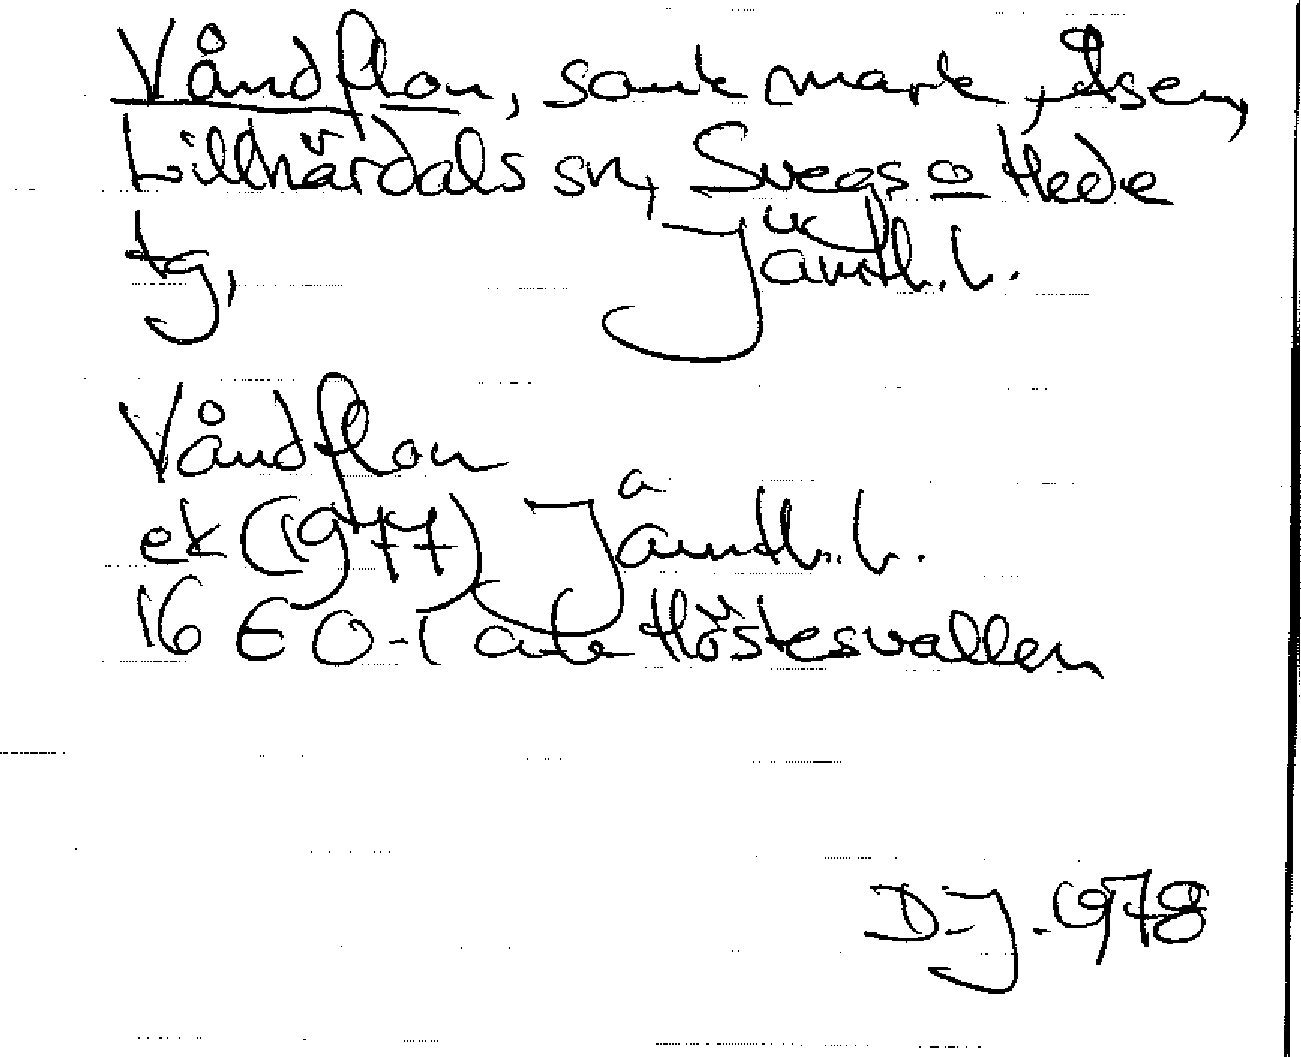 Våndflon, sank mark, Åsen,
Lillhärdals sn, Svegs o Hede
tg, Jämtl. l.
Våndflon
ek (1977) Jämtl. l.
16 E 0-1 a-b Höstesvallen
D-J. 1978